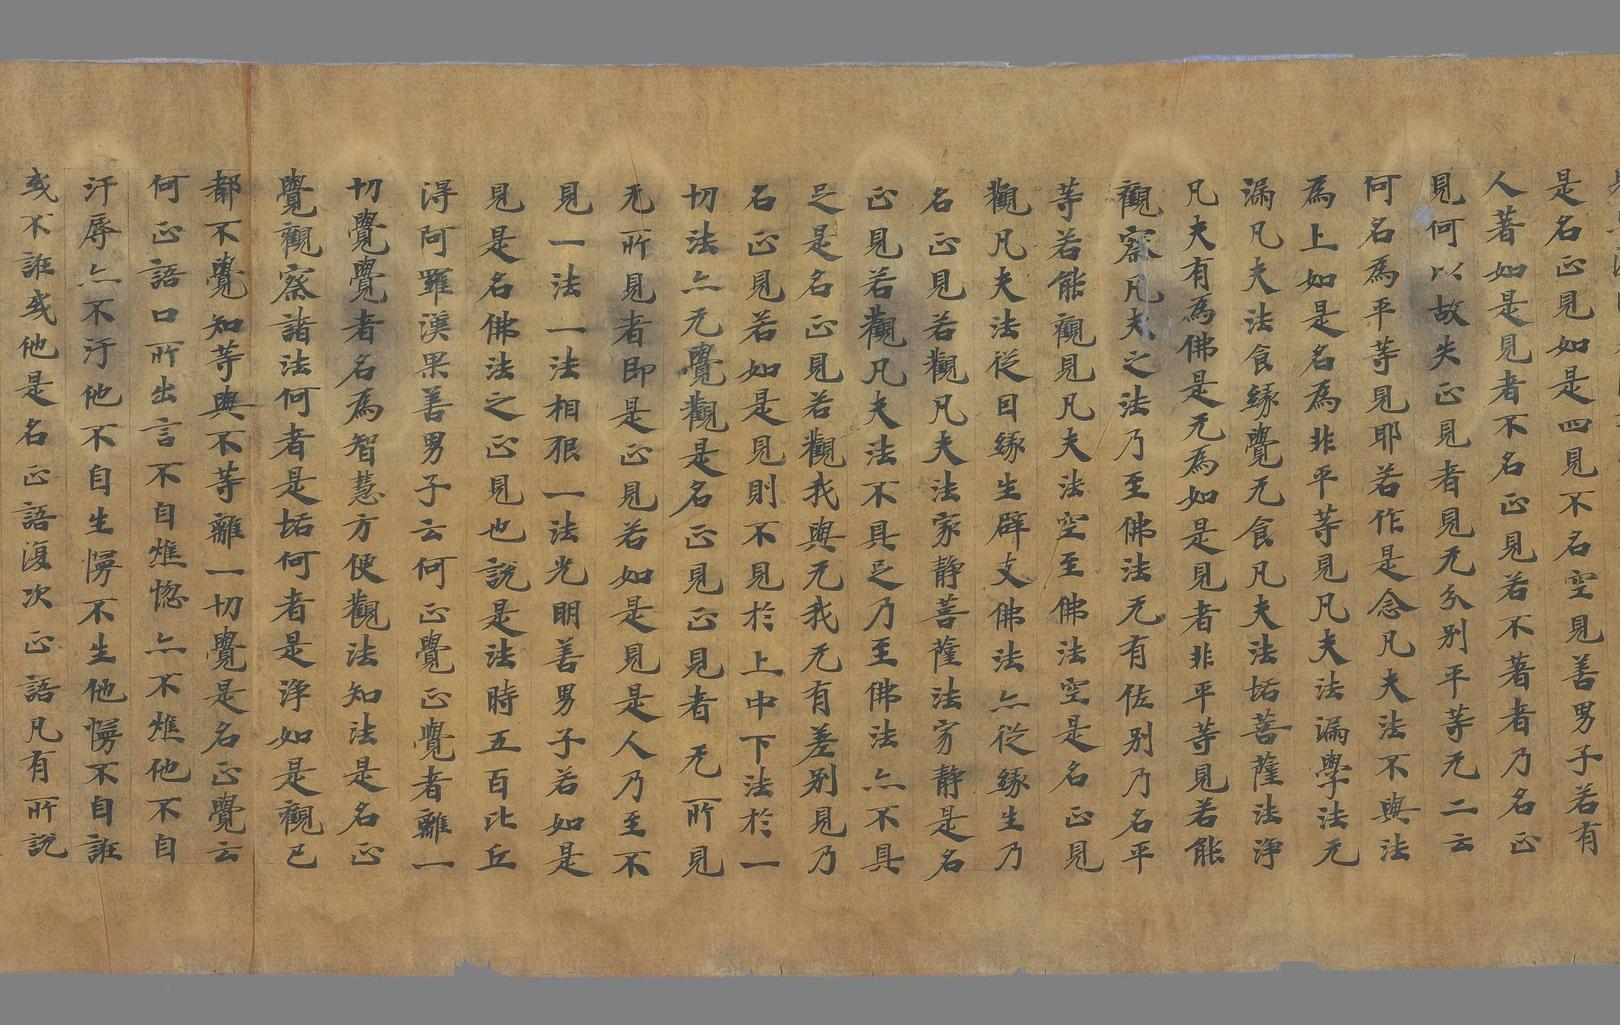 是名正見如是四見不名空見善男子若有
人著如是見者不名正見若不著者乃名正
見何以故失正見者見无分別平等无二云
何名為平等見耶若作是念凡夫法不與法
為上如是名為非平等見凡夫法漏學法无
漏凡夫法食緣覺无食凡夫法垢菩薩法淨
凡夫有為佛是无為如是見者非平等見若能
觀察凡夫之法乃至佛法无有佐別乃名平
等若能觀見凡夫法空至佛法空是名正見
觀凡夫法從因緣生辟支佛法亦從緣生乃
名正見若觀凡夫法家靜菩薩法家靜是名
正見若觀凡夫法不具足乃至佛法亦不具
足是名正見若觀我與无我无有差別見乃
名正見若如是見則不見於上中下法於一
切法亦无覺觀是名正見正見者无所見
无所見者即是正見若如是見是人乃至不
見一法一法相狠一法光明善男子若如是
見是名佛法之正見也說是法時五百比丘
淂阿羅漢果善男子云何正覺正覺者離一
切覺覺者名為智慧方便觀法知法是名正
覺觀察諸法何者是垢何者是淨如是觀已
都不覺知等與不等離一切覺是名正覺云
何正語口所出言不自燋惱亦不燋他不自
汙辱亦不汙他不自生憍不生他憍不自誑
或不誑或他是名正語復次正語凡有所說